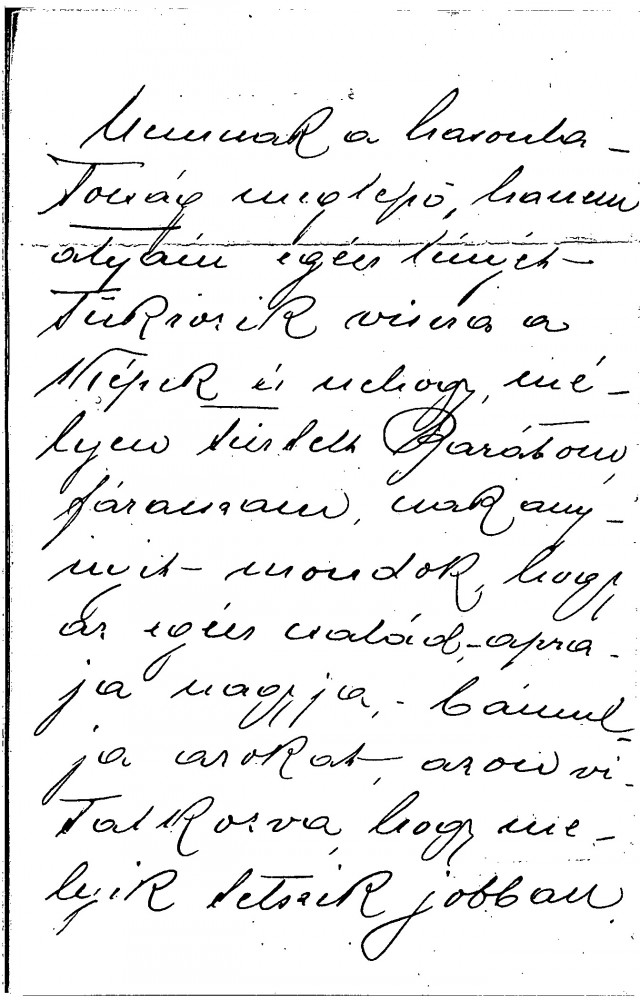 Nemcsak a hasonla-
tosság meglepő, hanem
atyám egész lényét
tükrözik vissza a
képek és nehogy, mé-
lyen tisztelt Barátom,
fárasszam, csak any-
nyit mondok, hogy
az egész család, - apra-
ja nagyja, - bámul-
ja azokat, azon vi-
tatkozva, hogy me-
lyik tetszik jobban.